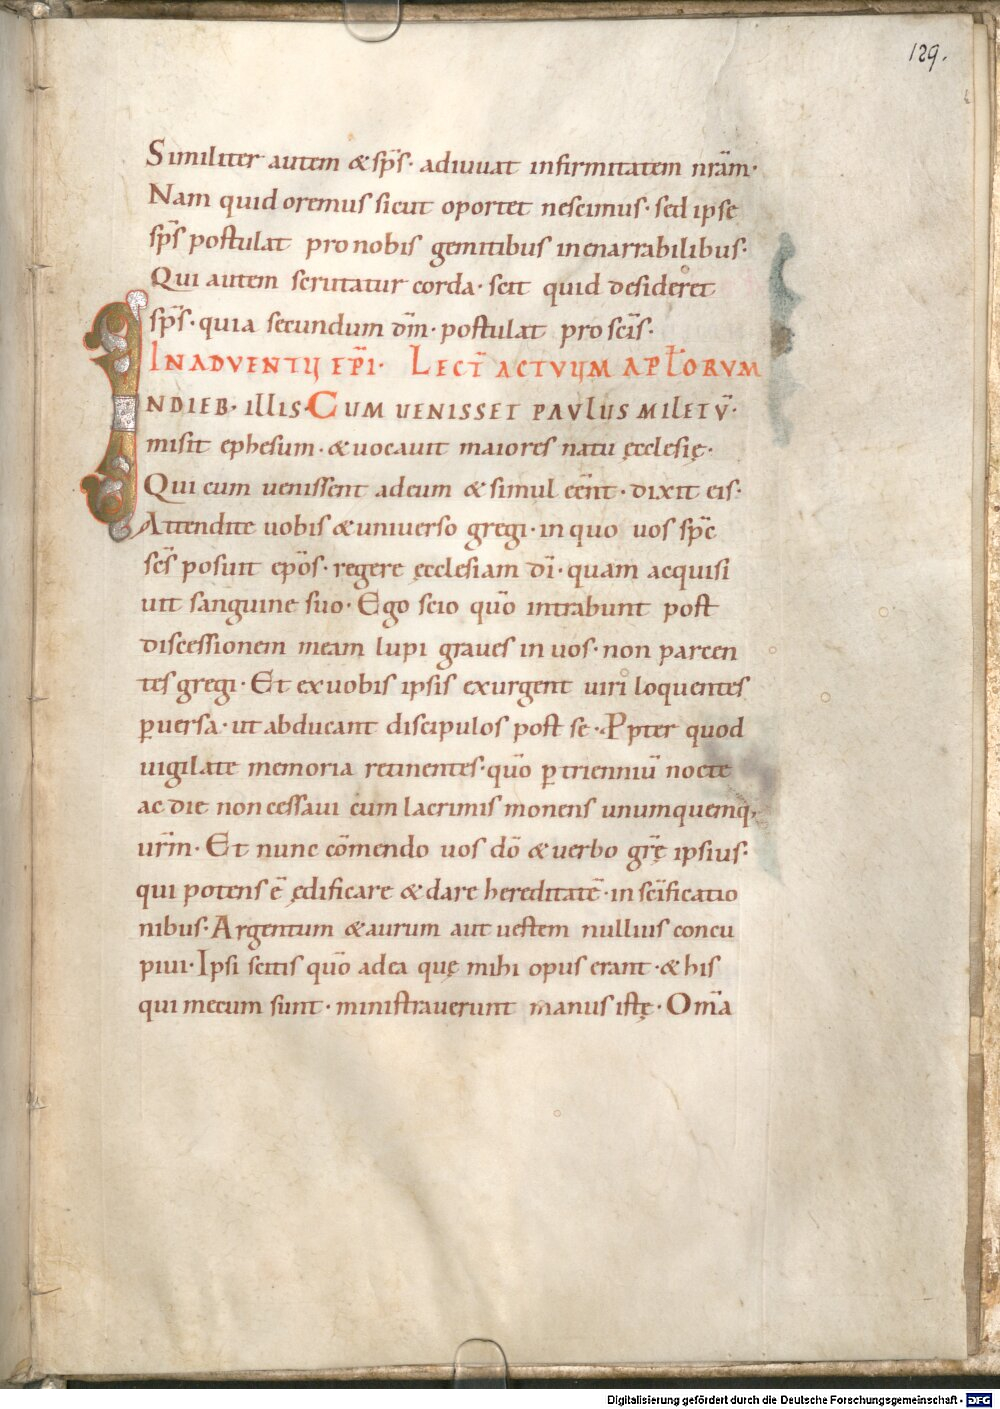 129.
Similiter autem & sp̄s· adiuuat infirmitatem nr̄am·
Nam quid oremus sicut oportet nescimus· sed ipse
sp̄s postulat pro nobis gemitibus inenarrabilibus·
Qui autem scrutatur corda· scit quid desideret
sp̄s· quia secundum dm̄· postulat pro scīs·
IN ADVENTU EPĪ· LECT̄ ACTUUM APL̄ORUM
INDIEB· ILLIS· CUM UENISSET PAULUS MILETŪ·
misit ephesum· & uocauit maiores natu ęcclesię·
Qui cum uenissent adeum & simul eēnt· dixit eis·
Attendite uobis & uniuerso gregi· in quo uos sp̄c
sēs posuit ep̄os· regere ęcclesiam dī· quam acquisi
uit sanguine suo· Ego scio qūo intrabunt post
discessionem meam lupi graues in uos· non parcen
tes gregi· Et exuobis ipsis exurgent uiri loquentes
ꝑuersa· ut abducant discipulos post se· Ppter quod
uigilate memoria retinentes· qūo ꝑ trienniū nocte
ac die non cessaui cum lacrimis monens unumquemq;
urm̄· Et nunc cōmendo uos dō & uerbo gr̄ę ipsius·
qui potens ē ędificare & dare hereditatē· in scīficatio
nibus· Argentum & aurum aut uestem nullius concu
piui· Ipsi scitis qūo adea quę mihi opus erant· & his
qui mecum sunt· ministrauerunt manus istę· Om̄a
Digitalisierung gefördert durch die Deutsche Forschungsgemeinschaft - DFG